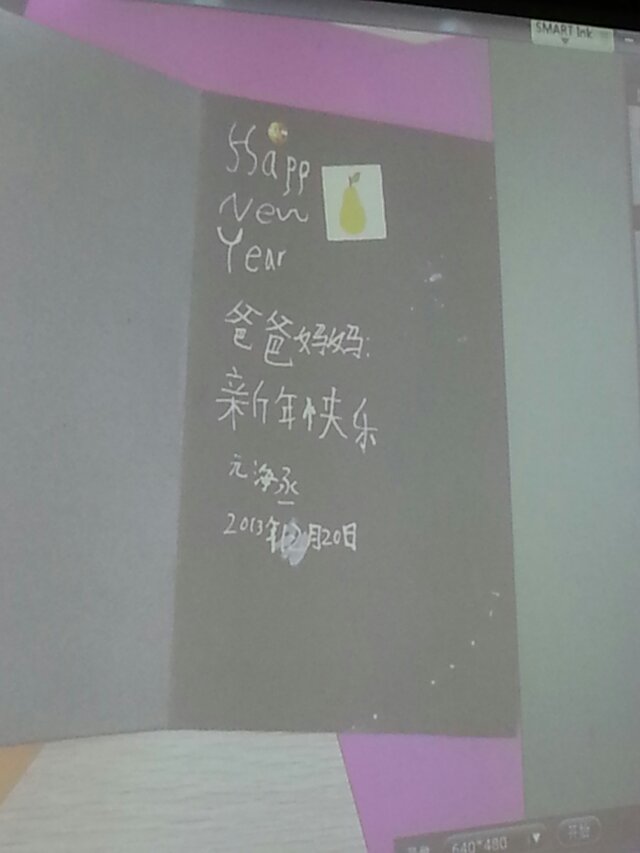 SMART Ink
Happ
New
Year
爸爸妈妈:
新年快乐
元海丞
2013年12月20日
640*480
开始